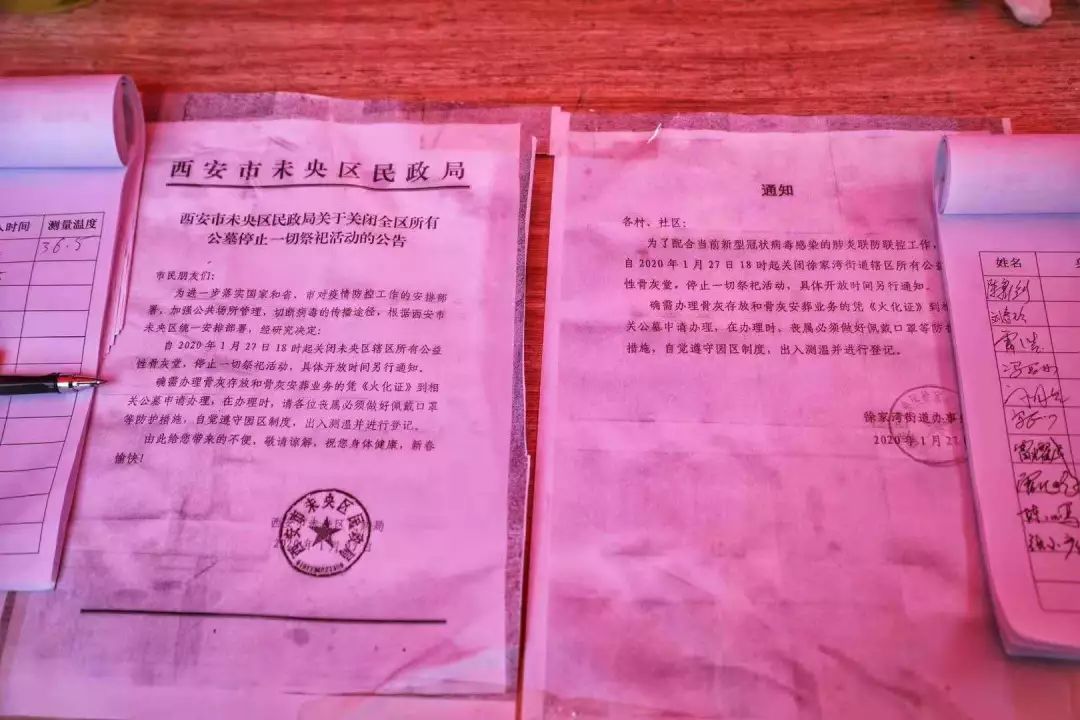 西安市未央区民政局
西安市未央区民政局关于关闭全区所有
公墓停止一切祭祀活动的公告
市民朋友们：
为进一步落实国家和省、市对疫情防控工作的安排部
署，加强公共场所管理，切断病毒的传播途径，根据西安市
未央区统一安排部署，经研究决定：
自2020年1月27日18时起关闭未央区辖区所有公益
性骨灰堂，停止一切祭祀活动，具体开放时间另行通知。
确需办理骨灰存放和骨灰安葬业务的凭《火化证》到相
关公墓申请办理，在办理时，请各位丧属必须做好佩戴口罩
等防护措施，自觉遵守园区制度，出入测温并进行登记。
由此给您带来的不便，敬请谅解，祝您身体健康，新春
愉快！
西安市未央区民政局
通知
各村、社区：
为了配合当前新型冠状病毒感染的肺炎联防联控工作，
自2020年1月27日18时起关闭徐家湾街道辖区所有公益
性骨灰堂，停止一切祭祀活动，具体开放时间另行通知。
确需办理骨灰存放和骨灰安葬业务的凭《火化证》到相
关公墓申请办理，在办理时，丧属必须做好佩戴口罩等防护
措施，自觉遵守园区制度，出入测温并进行登记。
徐家湾街道办事
2020年1月27
入时间 测量温度
36.5
姓名